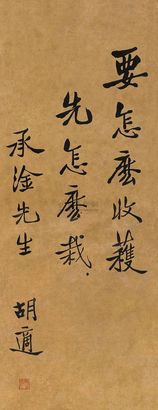 要怎麽收穫
先怎麽栽.
承淦先生
胡適